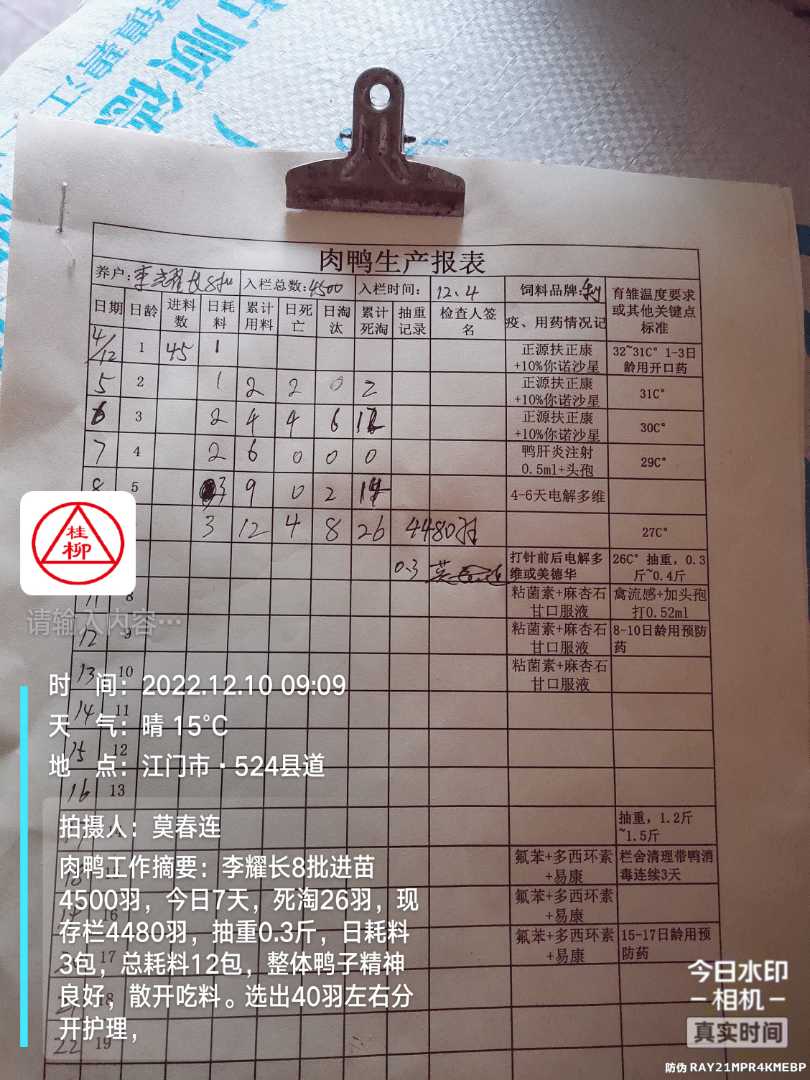 顺德
镇碧江
肉鸭生产报表
养户:李耀长8批 入栏总数:4500 入栏时间: 12、4 饲料品牌: 育雏温度要求或其他关键点标准
日期 日龄 进料数 日耗料 累计用料 日死亡 日淘汰 累计死淘 抽重记录 检查人签名 疫、用药情况记
4/12 1 45 1 正源扶正康+10%你诺沙星 32~31C° 1-3日龄用开口药
5 2 1 2 2 0 2 正源扶正康+10%你诺沙星 31C°
6 3 2 4 4 6 12 正源扶正康+10%你诺沙星 30C°
7 4 2 6 0 0 0 鸭肝炎注射0.5ml+头孢 29C°
8 5 3 9 0 2 14 4-6天电解多维
3 12 4 8 26 4480羽 27C°
0.3 打针前后电解多维或美德华 26C° 抽重，0.3斤~0.4斤
11 8 粘菌素+麻杏石甘口服液 禽流感+加头孢打0.52ml
12 9 粘菌素+麻杏石甘口服液 8-10日龄用预防药
13 10 粘菌素+麻杏石甘口服液
14 11
15 12
16 13
抽重，1.2斤~1.5斤
氟苯+多西环素+易康 栏舍清理带鸭消毒连续3天
16 氟苯+多西环素+易康
17 氟苯+多西环素+易康 15-17日龄用预防药
18
22 19
桂柳
请输入内容…
时 间：2022.12.10 09:09
天 气：晴 15℃
地 点：江门市·524县道
拍摄人：莫春连
肉鸭工作摘要：李耀长8批进苗
4500羽，今日7天，死淘26羽，现
存栏4480羽，抽重0.3斤，日耗料
3包，总耗料12包，整体鸭子精神
良好，散开吃料。选出40羽左右分
开护理，
今日水印
相机
真实时间
防伪 RAY21MPR4KMEBP